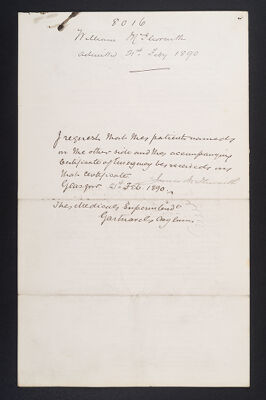 8016
William McIlwraith
Admitted 21st Feby 1890
I request that the patient named
on the other side and the accompanying
Certificate of Emergency be received on
that certificate
Glasgow 21st Feb. 1890
The Medical Superintendt
Gartnavel Asylum